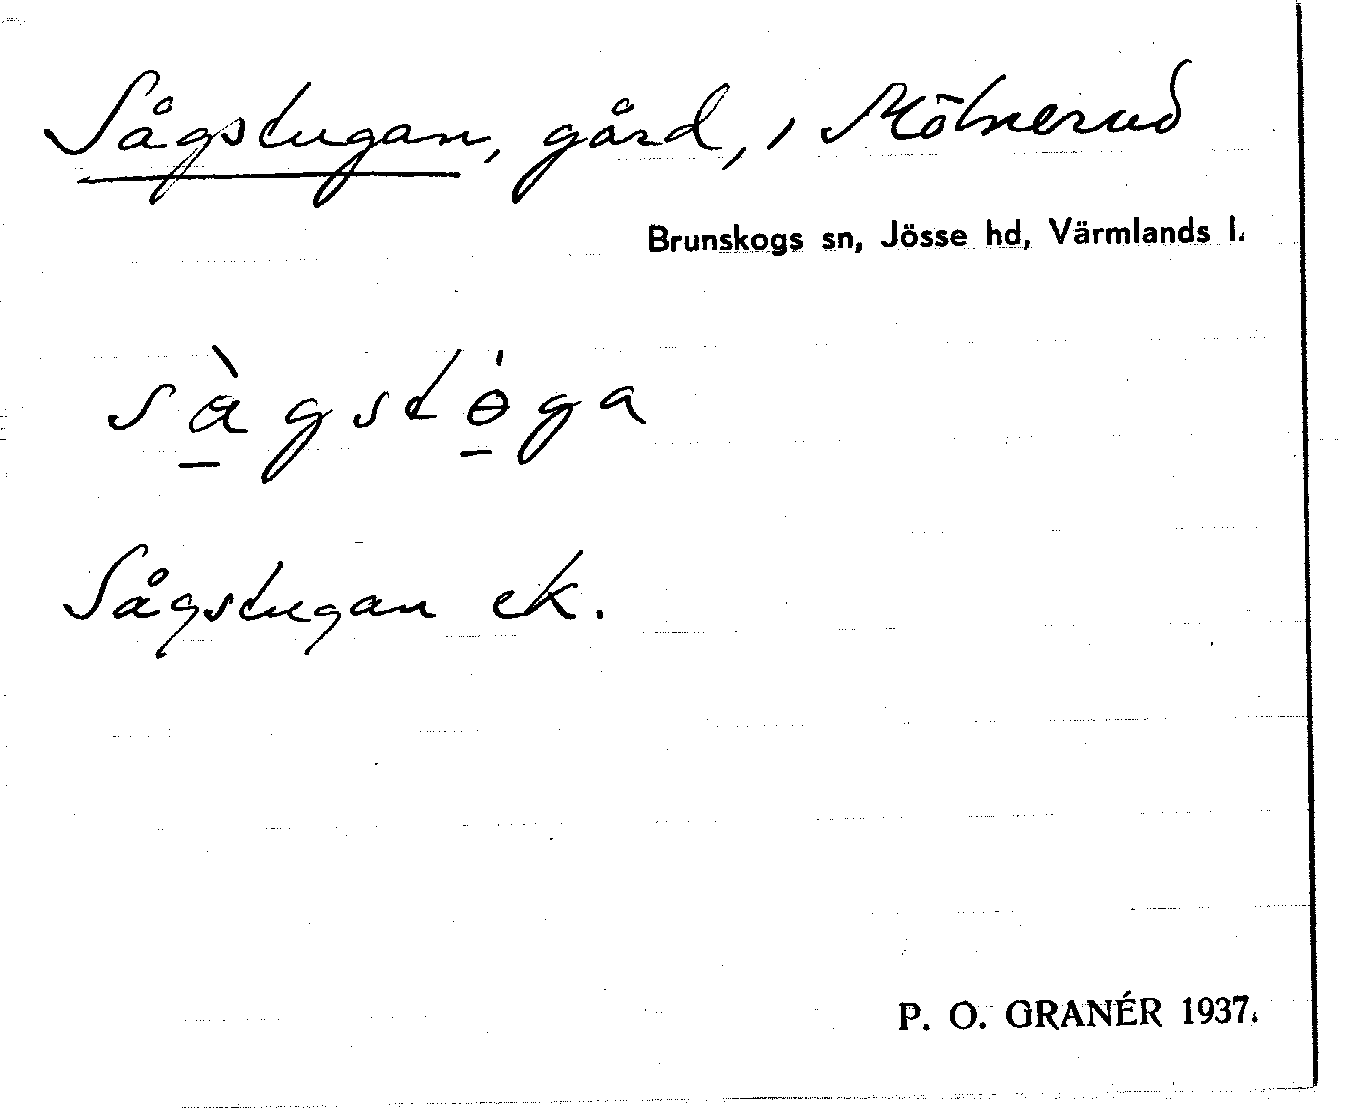 Sågstugan, gård, i Mölnerud
Brunskogs sn, Jösse hd, Värmlands l.
sàgstɵ́ga
Sågstugan ek.
P. O. GRANÉR 1937.